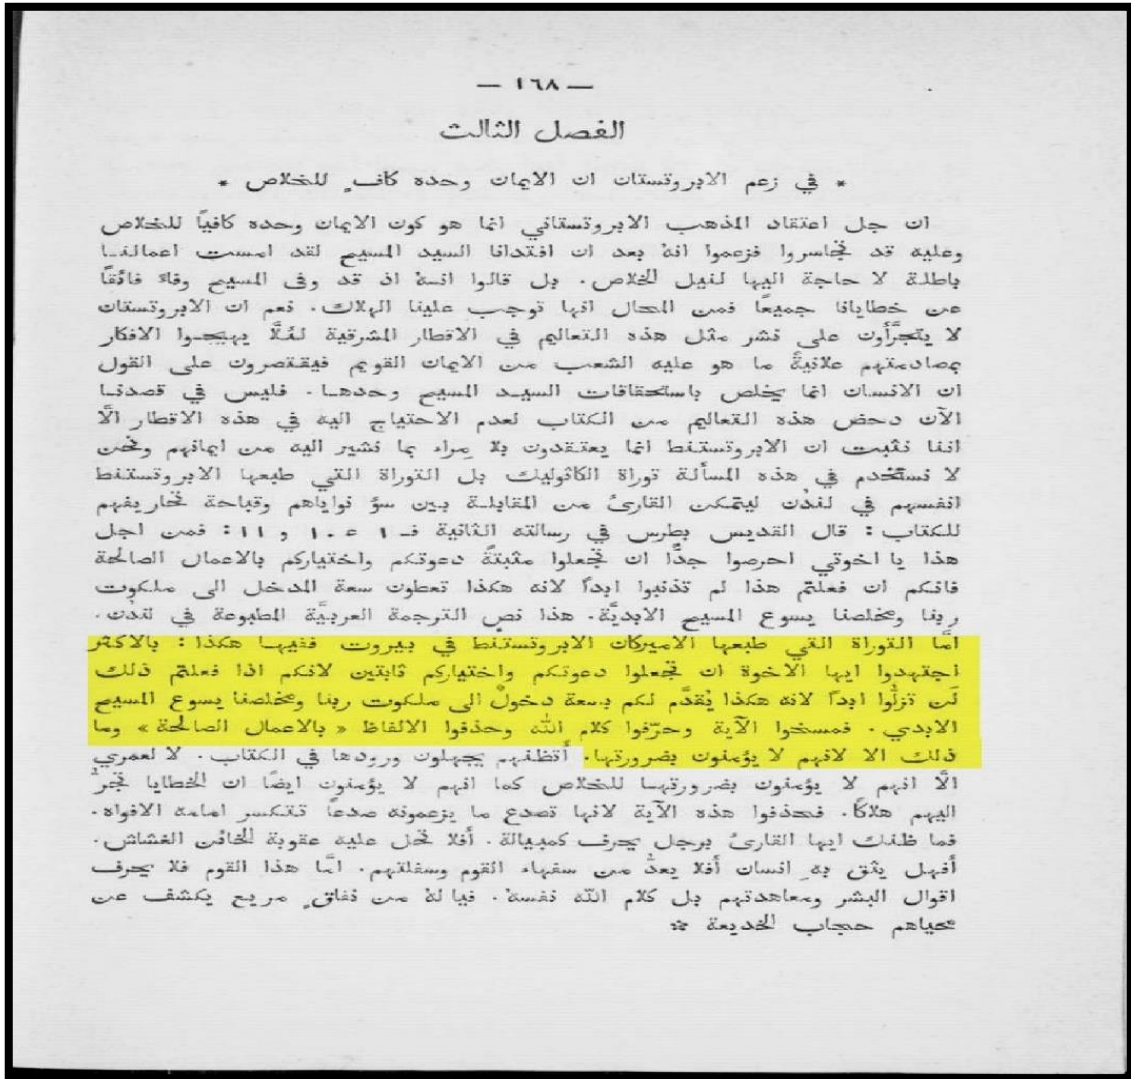 — ١٦٨ —
الفصل الثالث
* في زعم الابروتستان ان الايمان وحده كافٍ للخلاص *
ان جل اعتقاد المذهب الابروتستاني انما هو كون الايمان وحده كافياً للخلاص
وعليه قد تجاسروا فزعموا انهُ بعد ان افتدانا السيد المسيح لقد امست اعمالنا
باطلة لا حاجة اليها لنيل الخلاص. بل قالوا انهُ اذ قد وفى المسيح وفاءً فائقاً
عن خطايانا جميعاً فمن المحال انها توجب علينا الهلاك. نعم ان الابروتستان
لا يتجرَّأون على نشر مثل هذه التعاليم في الاقطار المشرقية لئلَّا يهيجوا الافكار
بمصادمتهم علانيةً ما هو عليه الشعب من الايمان القويم فيقتصرون على القول
ان الانسان انما يخلص باستحقاقات السيد المسيح وحدها. فليس في قصدنا
الآن دحض هذه التعاليم من الكتاب لعدم الاحتياج اليه في هذه الاقطار الَّا
اننا نثبت ان الابروتستنط انما يعتقدون بلا مراء بما نشير اليه من ايمانهم ونحن
لا نستخدم في هذه المسألة توراة الكاثوليك بل التوراة التي طبعها الابروتستنط
انفسهم في لندُن ليتمكن القارئُ من المقابلة بين سؤ نواياهم وقباحة تحاريفهم
للكتاب: قال القديس بطرس في رسالته الثانية فـ ١ ع ١٠ و ١١: فمن اجل
هذا يا اخوتي احرصوا جدًّا ان تجعلوا مثبتةً دعوتكم واختياركم بالاعمال الصالحة
فانكم ان فعلتم هذا لم تذنبوا ابداً لانه هكذا تعطون سعة المدخل الى ملكوت
ربنا ومخلصنا يسوع المسيح الابديَّة. هذا نص الترجمة العربيَّة المطبوعة في لندُن.
امَّا التوراة التي طبعها الاميركان الابروتستنط في بيروت ففيها هكذا: بالاكثر
اجتهدوا ايها الاخوة ان تجعلوا دعوتكم واختياركم ثابتين لانكم اذا فعلتم ذلك
لن تزلُّوا ابداً لانه هكذا يُقدَّم لكم بسعة دخولٌ الى ملكوت ربنا ومخلصنا يسوع المسيح
الابدي. فمسخوا الآية وحرّفوا كلام الله وحذفوا الالفاظ « بالاعمال الصالحة » وما
ذلك الا لانهم لا يؤمنون بضرورتها. أتظنهم يجهلون ورودها في الكتاب. لا لعمري
الَّا انهم لا يؤمنون بضرورتها للخلاص كما انهم لا يؤمنون ايضاً ان الخطايا تجرُّ
اليهم هلاكاً. فحذفوا هذه الآية لانها تصدع ما يزعمونه صدعاً تنكسر امامه الافواه.
فما ظنك ايها القارئُ برجل يحرف كمبيالة. أفلا تحل عليه عقوبة الخائن الغشاش.
أفهل يثق به انسان أفلا يعدُّ من سفهاء القوم وسفلتهم. امَّا هذا القوم فلا يحرف
اقوال البشر ومعاهدتهم بل كلام الله نفسهُ. فيا لهُ من نفاقٍ مريع يكشف عن
محياهم حجاب الخديعة *